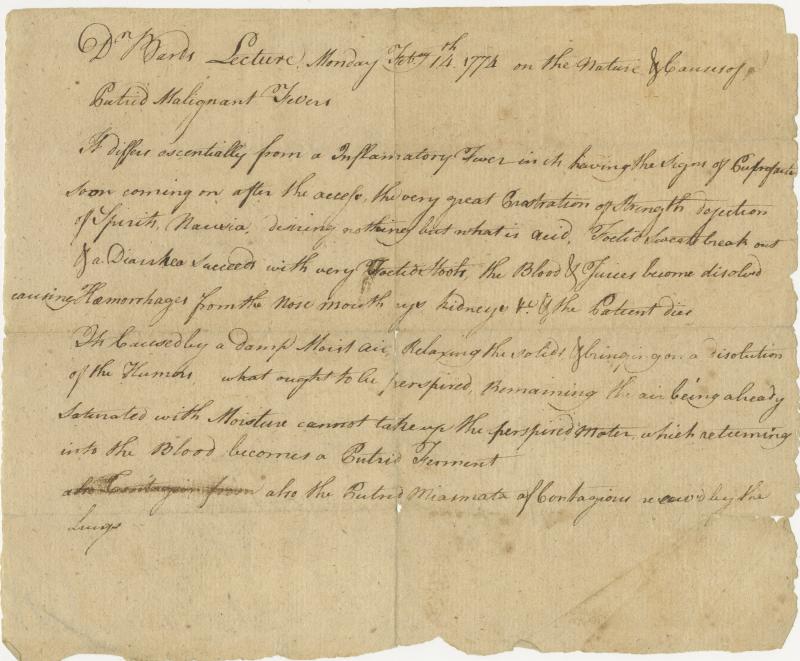 Dr Bards Lecture, Monday Feby 14th 1774 on the Nature & Causes of
Putrid Malignant Fevers
It differs essentially from a Inflamatory Fever in its having the Signs of Putrefaction
soon coming on after the access, the very great Prostration of Strength dejection
of Spirits, Nausia, desiring nothing but what is acid, Foetid Sweats break out
& a Diarrhea Succeeds with very Foetid Stools, the Blood & Juices become disolved
causing Hæmorrhages from the Nose mouth eyes kidneys &c & the Patient dies
Its Caused by a damp Moist air, Relaxing the solids & bringing on a disolution
of the Humors what ought to be perspired, Remaining the air being already
Saturated with Moisture cannot take up the perspired Mater, which returning
into the Blood becomes a Putrid Ferment
also Contagion from also the Putrid Miasmata of Contagious recevd by the
Lungs